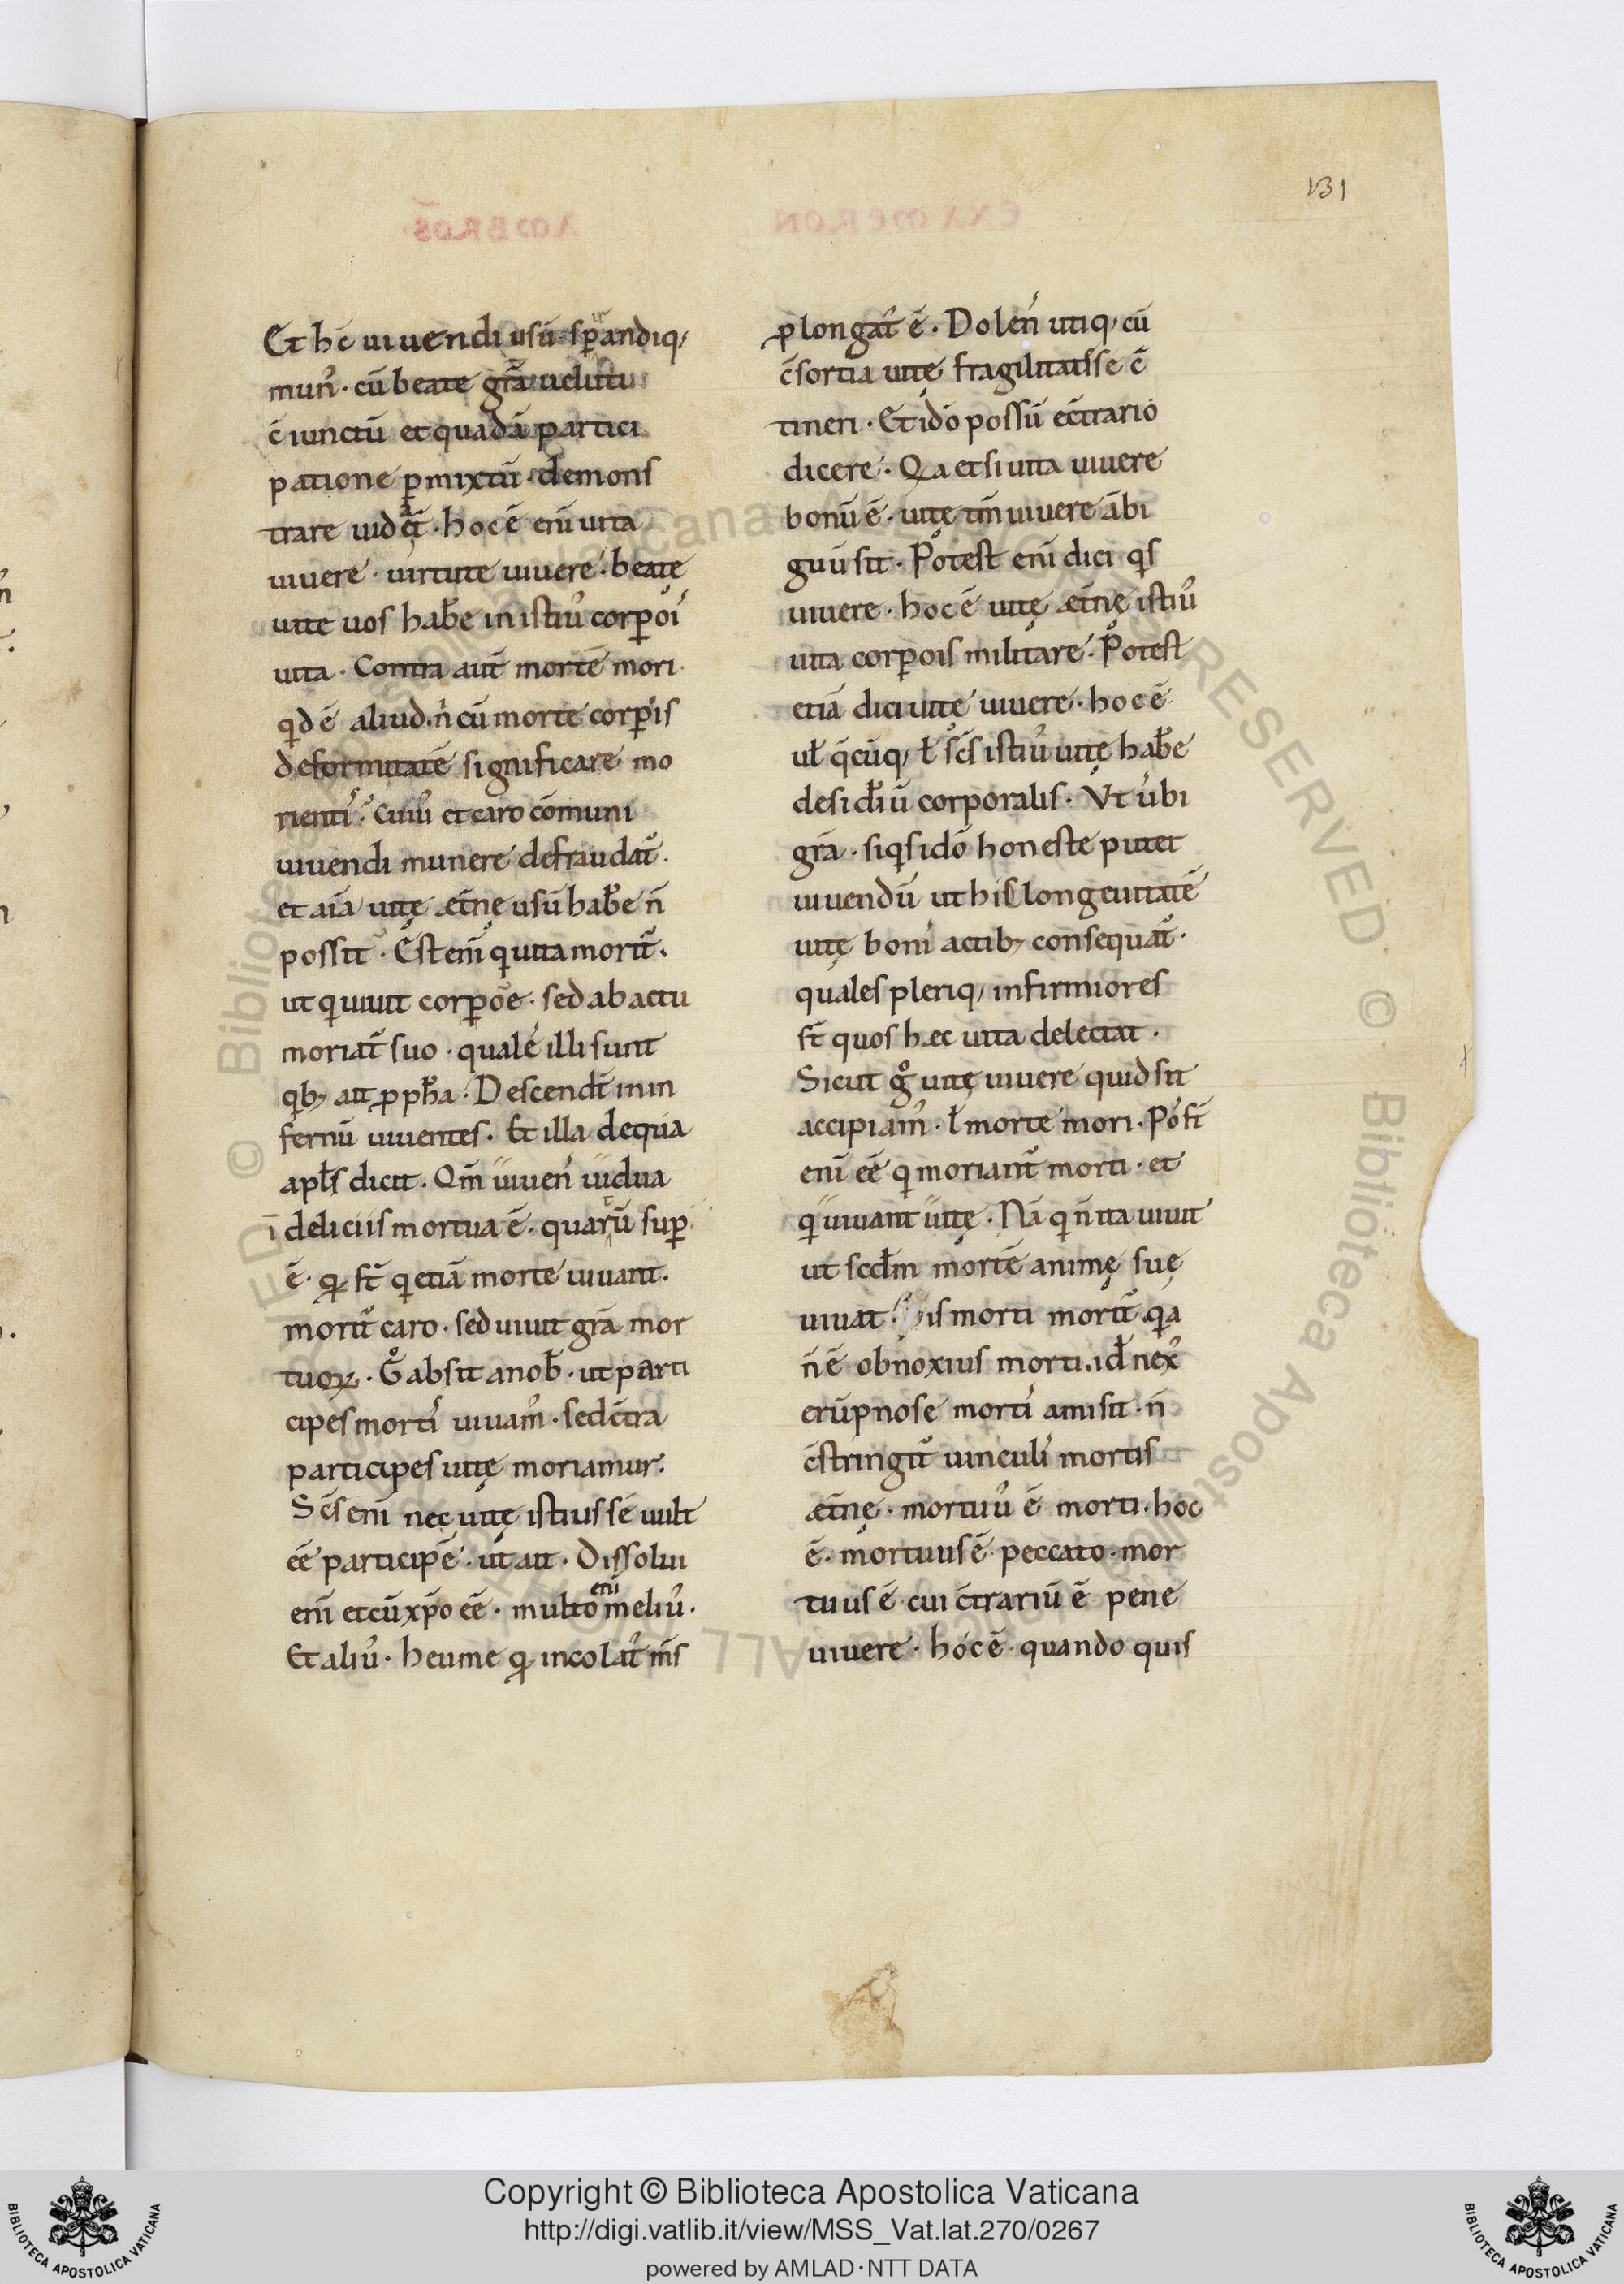 131
Et hc̄ uiuendi usū sꝑandiq;
mun᷒. cū beate gr̄a uelut
c̄iunctū et quadā partici
patione ꝑmixtū demons
trare uid. hoc ē enī uita
uiuere. uirtute uiuere. beatę
uite uos hab̄e in istiu᷒ corꝑoi᷒
uita. Contra aut̄ mortē mori.
qd ē aliud. n̄ cū morte corꝑis
deformitatē significare mo
rienti᷒. Cuiu᷒ et caro cōmuni
uiuendi munere defraudat᷒.
et aīa uitę æt̄nę usū hab̄e n̄
possit. Est enī q uita morit᷒.
ut q uiuit corꝑoe. sed ab actu
moriat᷒ suo. quale᷒ illi sunt
qb; ait ꝓph̄a. Descendt̄ in in
fernū uiuentes. Et illa de qua
apl̄s dicit. Qm̄ uiuen᷒ uidua
ī deliciis mortua ē. quarū suꝑ
ē. qꝛ st̄ q etiā morte uiuant.
morit᷒ caro. sed uiuit gr̄a mor
tuoꝝ. G̊ absit a nob̄. ut parti
cipes morti᷒ uiuam᷒. sed c̄tra
participes uitę moriamur.
Sc̄s enī nec uitę istius se uult
eē participē. ut ait. Dissolui
enī et cū xp̄o eē. multo enī meliu᷒.
Et aliu᷒. heu me qꝛ incolat᷒ ms̄
ꝓlongat᷒ ē. Dolen᷒ utiq; cū
c̄sortia uitę fragilitatisse c̄
tineri. Et idō possū ec̄trario
dicere. Qa etsi uita uiuere
bonū ē. uitę tm̄ uiuere ābi
guū sit. Potest enī dici qs
uiuere. hoc ē uitę æt̄nę istiu᷒
uita corꝑois militare. Potest
etiā dici uitę uiuere. hoc ē
ul̄ q̄cūq; ł sc̄s istiu᷒ uitę hab̄e
desid̄iū corporalis. Vt u᷒bi
gr̄a. siqs idō honeste putet
uiuendū ut his longeuitatē
uitę boni᷒ actib; consequat᷒.
quales pleriq; infirmiores
st̄ quos hæc uita delectat.
Sicut g̊ uitę uiuere quid sit
accipiam᷒. ł morte mori. Po᷒st̄
enī eē q moriant᷒ morti. et
q uiuant uitę. Nā q n̄ ita uiuit
ut scd̄m mortē animę suę
uiuat. is morti morit᷒ qa
n̄ ē obnoxius morti. id̄ nex᷒
erūpnose morti᷒ amisit. n̄
c̄stringit᷒ uinculi᷒ mortis
æt̄nę. mortuu᷒ ē morti. hoc
ē. mortuus ē peccato. mor
tuus ē cui c̄trariū ē pene
uiuere. hoc ē. quando quis
Copyright © Biblioteca Apostolica Vaticana
http://digi.vatlib.it/view/MSS_Vat.lat.270/0267
powered by AMLAD·NTT DATA
BIBLIOTECA APOSTOLICA VATICANA
BIBLIOTECA APOSTOLICA VATICANA